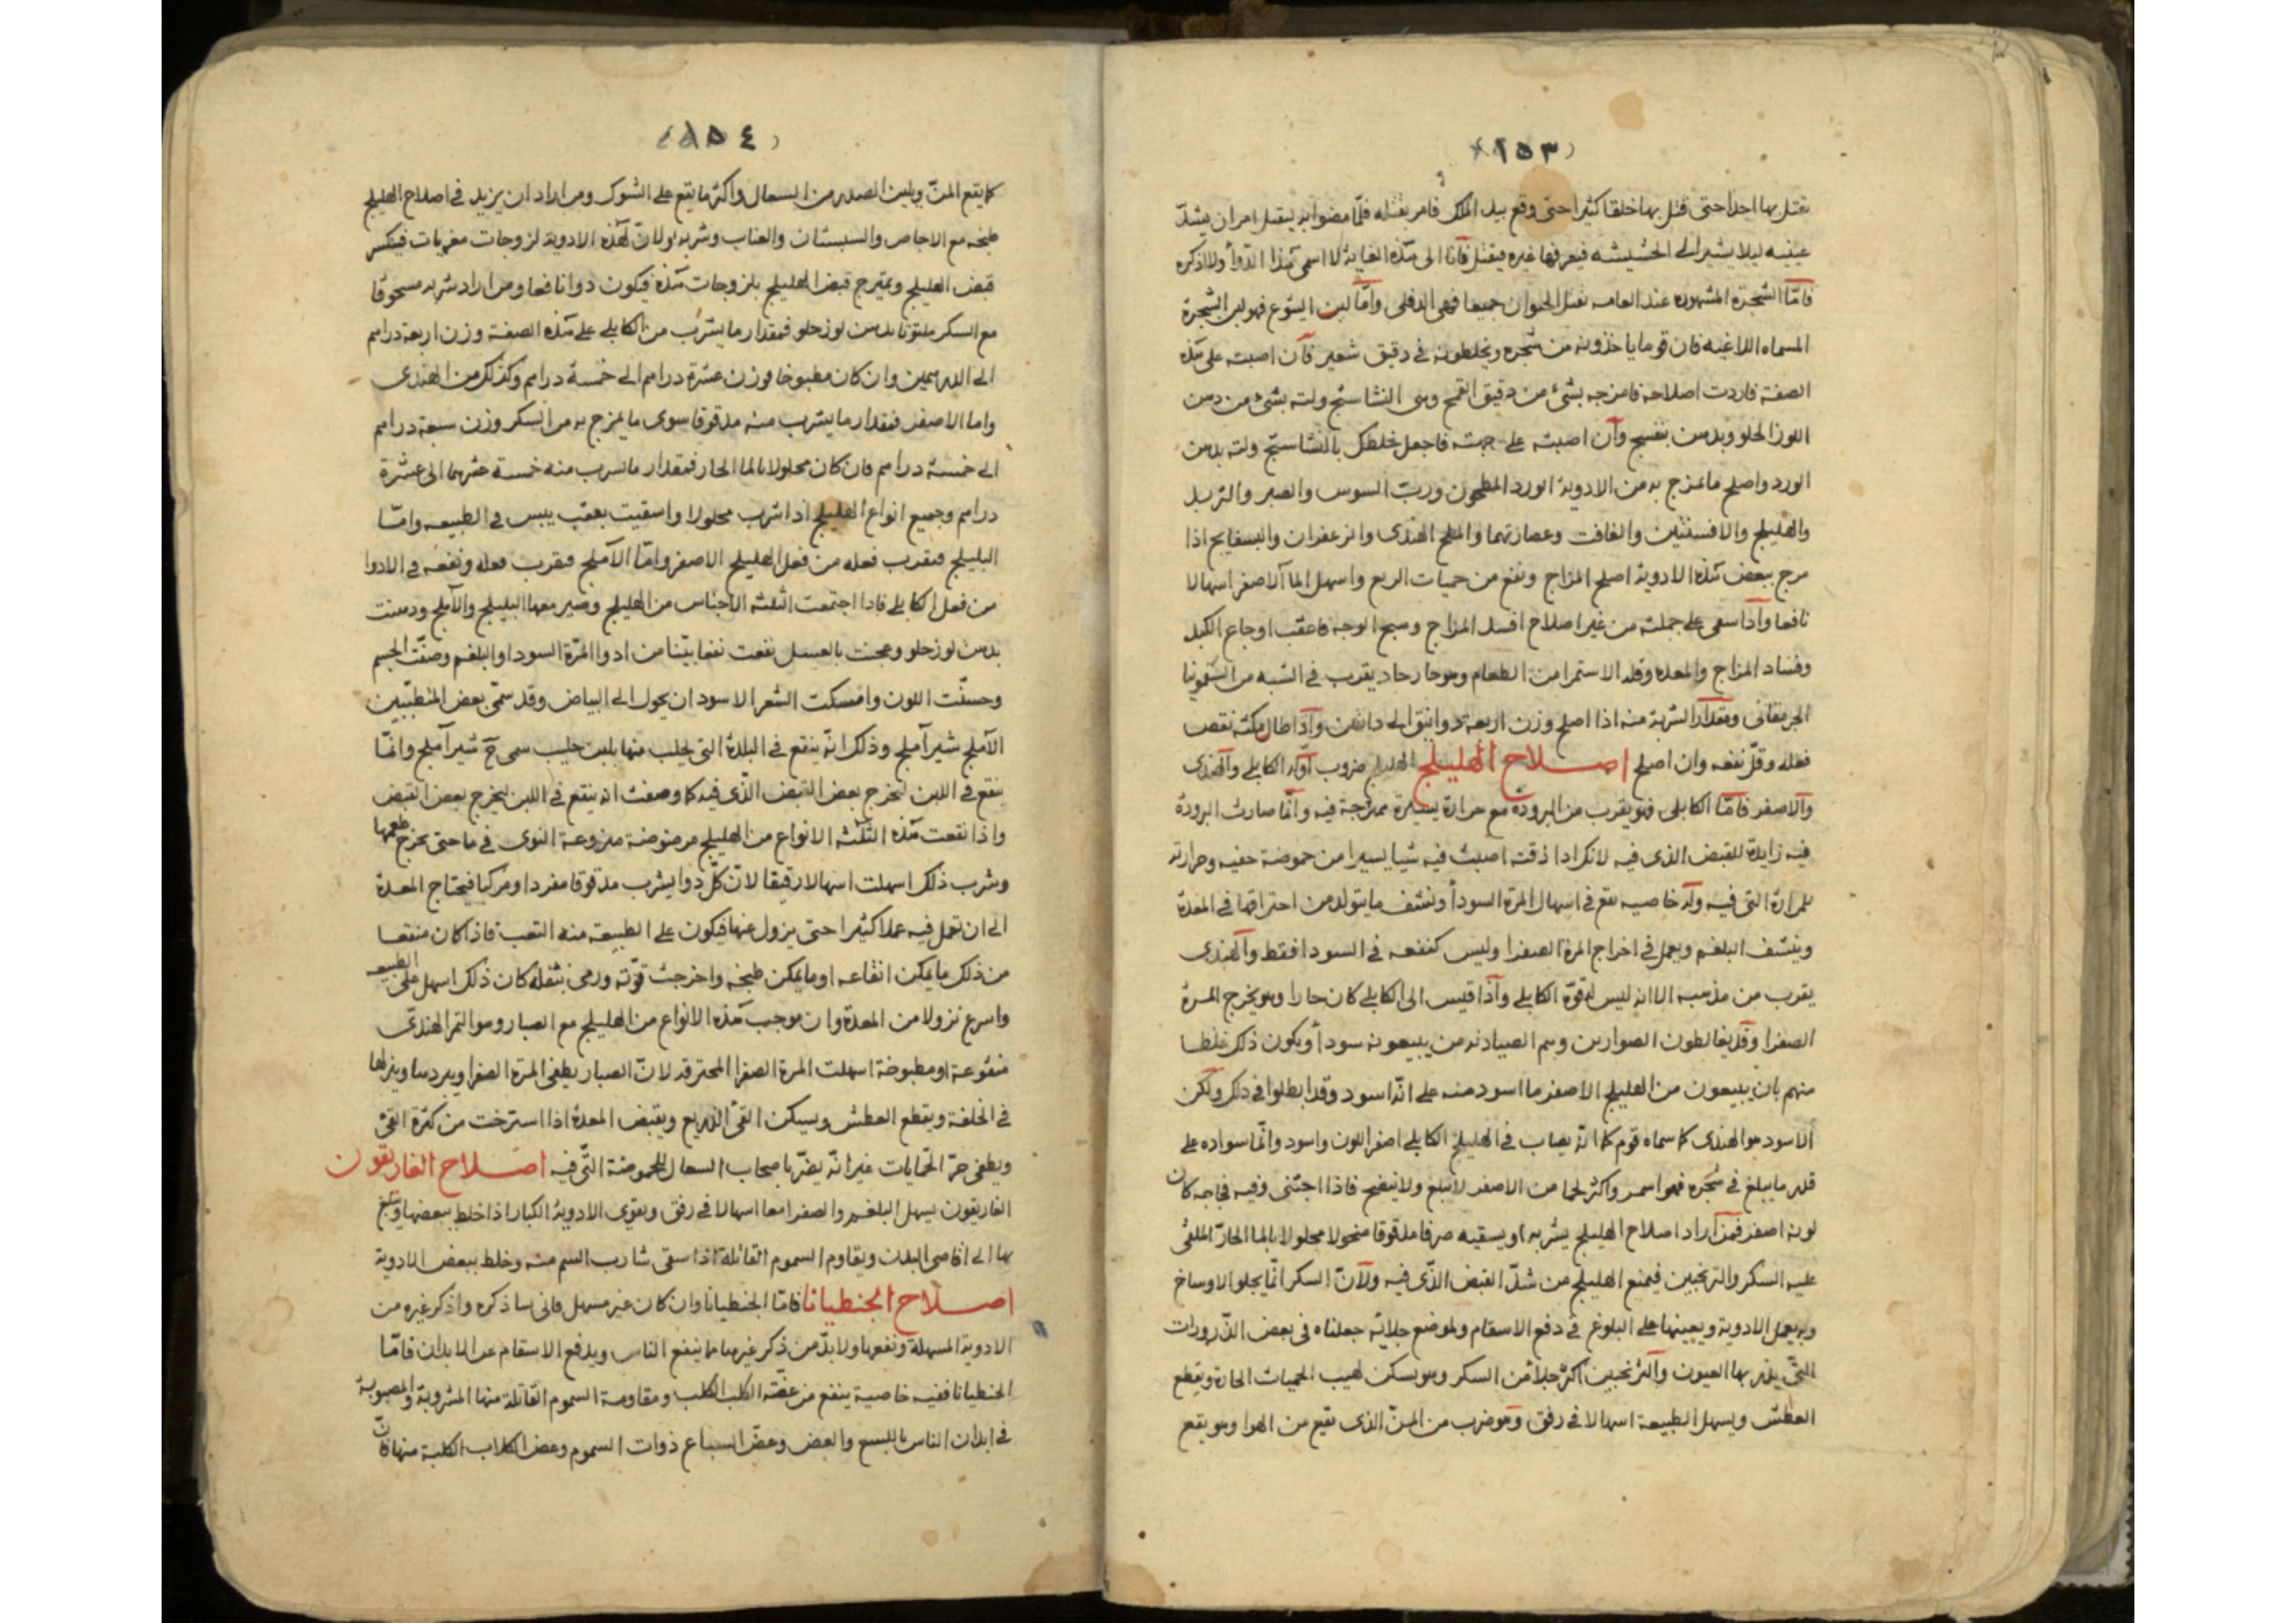 (١٥٣)
يقتل بها احدا حتى قتل بها خلقا كثيرا حتى وقع بيد الملك فامر بقتله فلما مضوا به ليقتل امر ان يشد
عينيه ليلا يشير الى الحشيشه فيعرفها غيره فيقتل فانا الى هذه الغاية لا اسمى هذا الدوأ ولا اذكره
فامّا الشجرة المشهوره عند العامه تقتل الحيوان جميعا فهى الدفلى وامّا لبن اليتوع فهو لبن الشجرة
المسماه اللاغيه فان قوما ياخذونه من شجره ويخلطونه فى دقيق شعير فان اصبته على هذه
الصفة فاردت اصلاحه فامزجه بشئ من دقيق القمح وهى النشاستج ولته بشئ من دهن
اللوز الحلو وبدهن بنفسج وان اصبته على جهته فاجعل خلطك بالنشاستج ولته بدهن
الورد واصلح ما تمزج به من الادوية الورد المطحون وربّ السوس والصبر والتربد
والهليلج والافسنتين والغافت وعصارتهما والملح الهندى والزعفران والبسفايج اذا
مزج ببعض هذه الادوية اصلح المزاج ونفع من حميات الربع واسهل الما الاصفر اسهالا
نافعا واذا سقى على جملته من غير اصلاح افسد المزاج وهيج الوجه فاعقب اوجاع الكبد
وفساد المزاج والمعده وقله الاستمرا من الطعام وهو حار حاد يقرب فى الشبه من السقمونيا
الجرمقانى ومقدار الشربة منه اذا اصلح وزن اربعة دوانيق الى دانقين واذا طال مكثه نقص
فعله وقلّ نفعه وان اصلح اصلاح الهليلج الهليلج ضروب اوله الكابلى والهندى
والاصفر فامّا الكابلى فهو يقرب من البرودة مع حرارة يسيرة ممتزجة فيه وانّما صارت البرودة
فيه زايدة للقبض الذى فيه لانك اذا ذقته اصبت فيه شيا يسيرا من حموضة خفيه وحرارته
للمرارة التى فيه وله خاصيه تقع فى اسهال المرة السودأ وينشف ما يتولد من احتراقها فى المعدة
وينشف البلغم ويعمل فى اخراج المرة الصفرا وليس كنفعه فى السودا فقط والهندى
يقرب من مذهبه الا انه ليس له قوّة الكابلى واذا قيس الى الكابلى كان حارا وهو يخرج المرة
الصفرا وقد يغالطون الصوارين وهم الصيادنه من يبيعونه سودأ ويكون ذلك غلطا
منهم بان يبيعون من الهليلج الاصفر ما اسود منه على انّه اسود وقد ابطلوا فى ذلك ولكن
الاسود هو الهندى كما سماه قوم كما انّه يصاب فى الهليلج الكابلى اصفر اللون واسود وانّما سواده على
قدر ما يبلغ فى شجره فهو اسمر واكثر لحما من الاصفر لا يبلغ ولا ينضج فاذا اجتنى وفيه فجاجه كان
لونه اصفر فمن اراد اصلاح الهليلج يشربه او يسقيه صرفا مدقوقا منخولا محلولا بالما الحارّ الملقى
عليه السكر والترنجبين فيمنع الهليلج من شدّ القبض الذّى فيه ولانّ السكر انّما يجلو الاوساخ
ويعمل الادوية ويعينها على البلوغ فى دفع الاسقام ولموضع جلائه جعلناه فى بعض الذّرورات
التّى يذر بها العيون والترنجبين اكثر جلا من السكر وهو يسكن لهيب الحميات الحارة ويقطع
العطش ويسهل الطبيعة اسهالا فى رفق وهو ضرب من المنّ الذى يقع من الهوا وهو يقع
(١٥٤)
كما يقع المنّ ويلين الصدر من السعال واكثر ما يقع على الشوك ومن اراد ان يزيد فى اصلاح الهليلج
طبخه مع الاجاص والسبستان والعناب وشربه ولانّ لهذه الادوية لزوجات مغريات فيكسر
قبض الهليلج ويمتزج قبض الهليلج بلزوجات هذه فيكون دوا نافعا ومن اراد شربه مسحوقا
مع السكر ملتوتا بدهن لوز حلو فمقدار ما يشرب من الكابلى على هذه الصفة وزن اربعة دراهم
الى الدرهمين وان كان مطبوخا فوزن عشرة دراهم الى خمسة دراهم وكذلك من الهندى
واما الاصفر فمقدار ما يشرب منه مدقوقا سوى ما يمزج به من السكر وزن سبعة دراهم
الى خمسة دراهم فان كان محلولا بالما الحار فمقدار ما يشرب منه خمسة عشر درهما الى عشرة
دراهم وجميع انواع الهليلج اذا شرب محلولا واسقيت يعقب يبس فى الطبيعه وامّا
البليلج فيقرب فعله من فعل الهليلج الاصفر وامّا الآملج فيقرب فعله ونفعه فى الادوا
من فعل الكابلى فاذا اجتمعت الثلثه الاجناس من الهليلج وصير معها البليلج والآملج ودهنت
بدهن لوز حلو وعجنت بالعسل نفعت نفعا بيّنا من ادوا المرّة السودا والبلغم وصفّت الجسم
وحسنّت اللون وامسكت الشعر الاسود ان يحول الى البياض وقد سمّى بعض المتطبّبين
الآملج شير آملج وذلك انّه ينقع فى البلدة التى يجلب منها بلبن حليب سمى ح شير آملج وانمّا
ينقع فى اللبن ليخرج بعض القبض الذّى فيه كما وصفت انه ينقع فى اللبن ليخرج بعض القبض
واذا نقعت هذه الثلثه الانواع من الهليلج مرضوضة منزوعة النوى فى ما حتى يخرج طعمها
وشرب ذلك اسهلت اسهالا رقيقا لانّ كلّ دوا يشرب مدقوقا مفردا ومركبا فيحتاج المعدة
الى ان تعمل فيه عملا كثيرا حتى يزول عنها فيكون على الطبيعة منه التعب فاذ كان منقعا
من ذلك ما يمكن انقاعه او ما يمكن طبخه واخرجت قوّته ورمى بثفله كان ذلك اسهل على الطبيعه
واسرع نزولا من المعدة وان موجب هذه الانواع من الهليلج مع الصبار وهو التمر الهندىّ
منقوعة او مطبوخة اسهلت المرة الصفرا المحترقه لانّ الصبار يطفى المرة الصفرا ويبردها وينزلها
فى الخلفة ويقطع العطش ويسكن القئ الذريع ويقبض المعدة اذا استرخت من كثرة القئ
ويطفى حرّ الحمايات غير انّه يضرّ باصحاب السعال للحموضة التّى فيه اصلاح الغاريقون
الغاريقون يسهل البلغم والصفرا معا اسهالا فى رفق ويقوى الادوية الكبار اذا خلط ببعضها ويبلغ
بها الى اقاصى البدن ويقاوم السموم القاتلة اذا سقى شارب السم منه وخلط ببعض الادوية
اصلاح الجنطيانا فامّا الجنطيانا وان كان غير مسهل فانى ساذكره واذكر غيره من
الادوية المسهلة ونفعها ولا بدّ من ذكر غيرها مما ينفع الناس ويدفع الاسقام عن الابدان فامّا
الجنطيانا ففيه خاصية ينفع من عضّة الكلب الكلب ومقاومة السموم القاتلة منها المشروبة والمصبوبة
فى ابدان الناس باللسع والعض وعضّ السباع ذوات السموم وعض الكلاب الكلبة منها فانّ